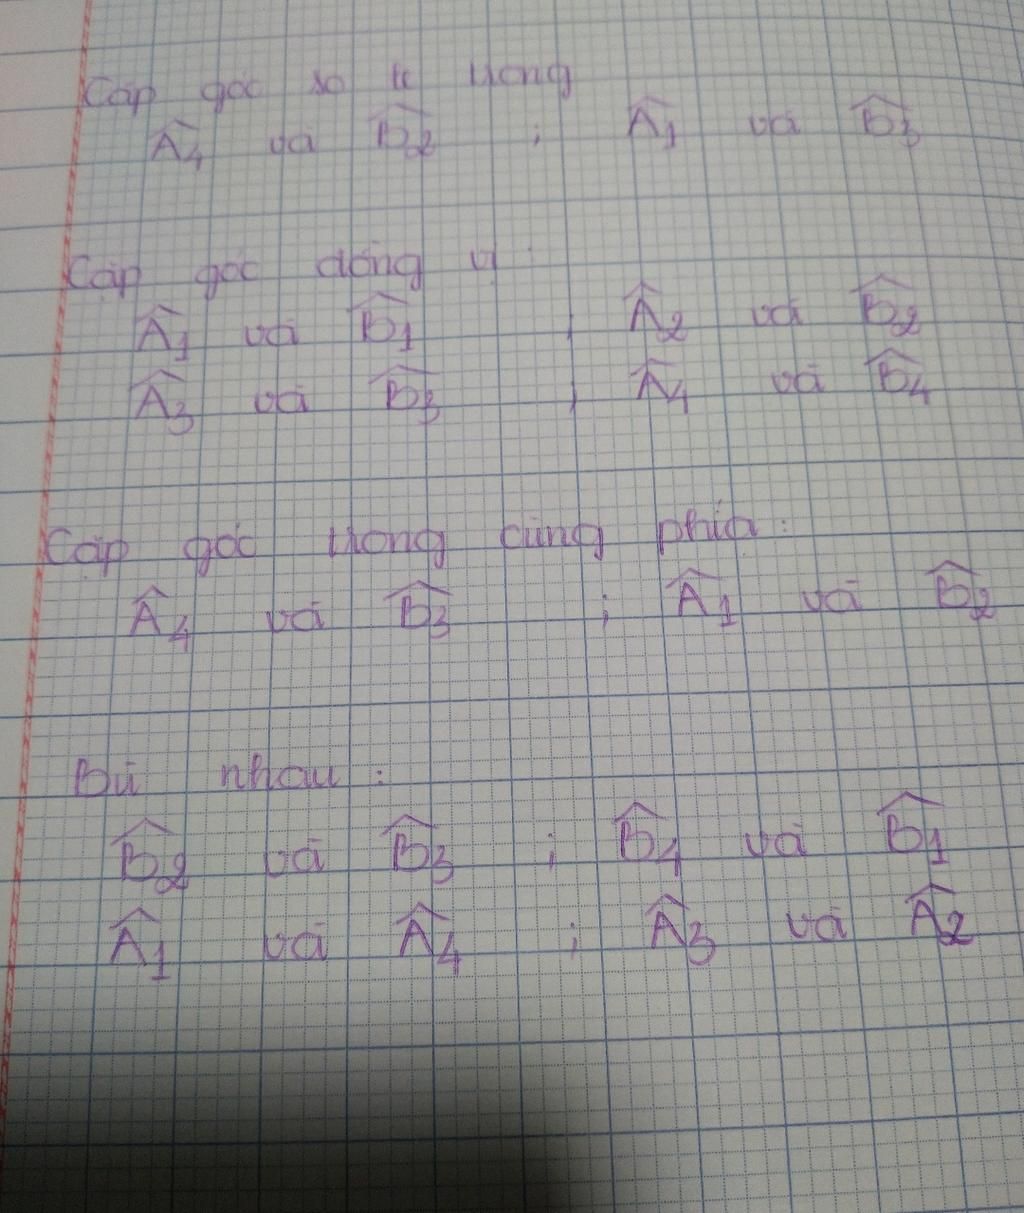 Cặp góc so le trong
Â₄ và B̂₂ ; Â₁ và B̂₃
Cặp góc đồng vị :
Â₁ và B̂₁ ; Â₂ và B̂₂
Â₃ và B̂₃ ; Â₄ và B̂₄
Cặp góc trong cùng phía :
Â₄ và B̂₃ ; Â₁ và B̂₂
Bù nhau :
B̂₂ và B̂₃ ; B̂₄ và B̂₁
Â₁ và Â₄ ; Â₃ và Â₂